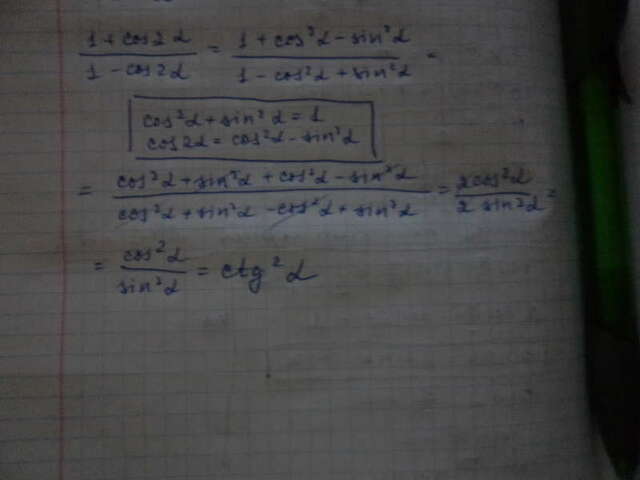 (1 + cos2α)/(1 - cos2α) = (1 + cos²α - sin²α)/(1 - cos²α + sin²α) =
cos²α + sin²α = 1
cos2α = cos²α - sin²α
= (cos²α + sin²α + cos²α - sin²α)/(cos²α + sin²α - cos²α + sin²α) = (2cos²α)/(2 sin²α) =
= cos²α/sin²α = ctg²α